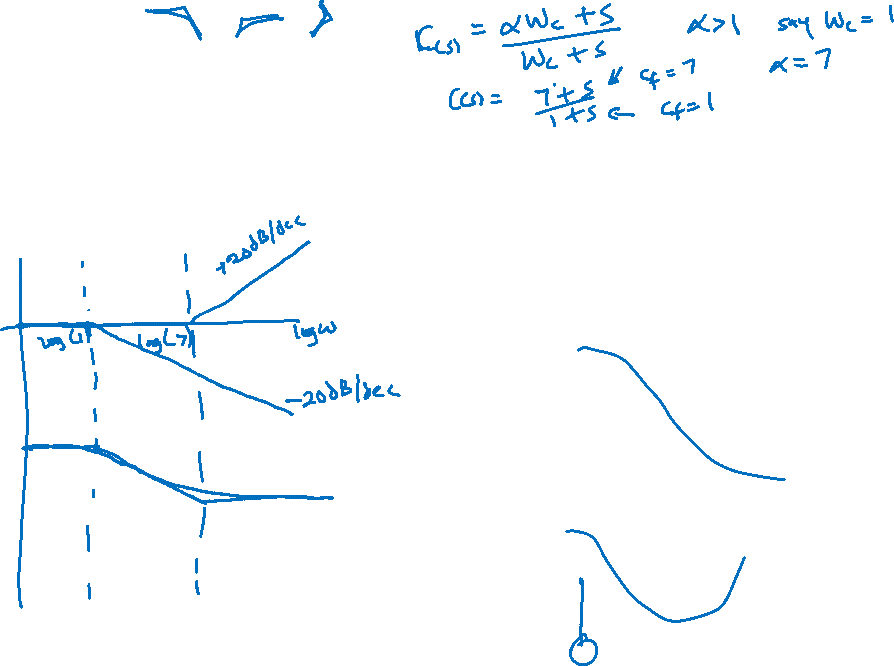 K(s) = αWc + S / Wc + S   α>1   say Wc = 1
α = 7
C(s) = 7 + S / 1 + S   ↙ cf = 7   ← cf = 1
+20dB/dec
log(1)   log(7)   log ω
-20dB/dec